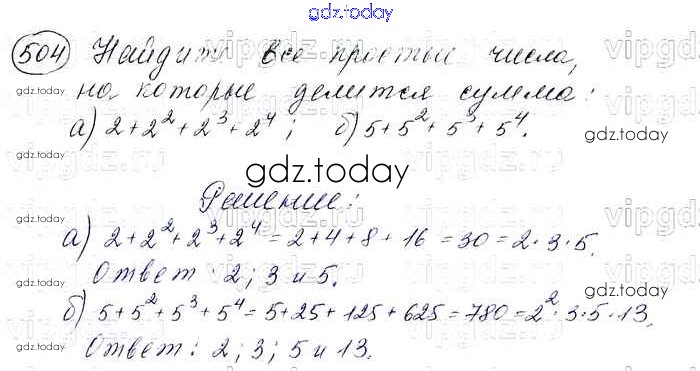 gdz.today
504 Найдите все простые числа,
на которые делится сумма:
а) 2+2²+2³+2⁴; б) 5+5²+5³+5⁴.
gdz.today
gdz.today
gdz.today
Решение:
а) 2+2²+2³+2⁴=2+4+8+16=30=2·3·5.
Ответ: 2; 3 и 5.
gdz.today
б) 5+5²+5³+5⁴=5+25+125+625=780=2²·3·5·13.
gdz.today
Ответ: 2; 3; 5 и 13.
gdz.today